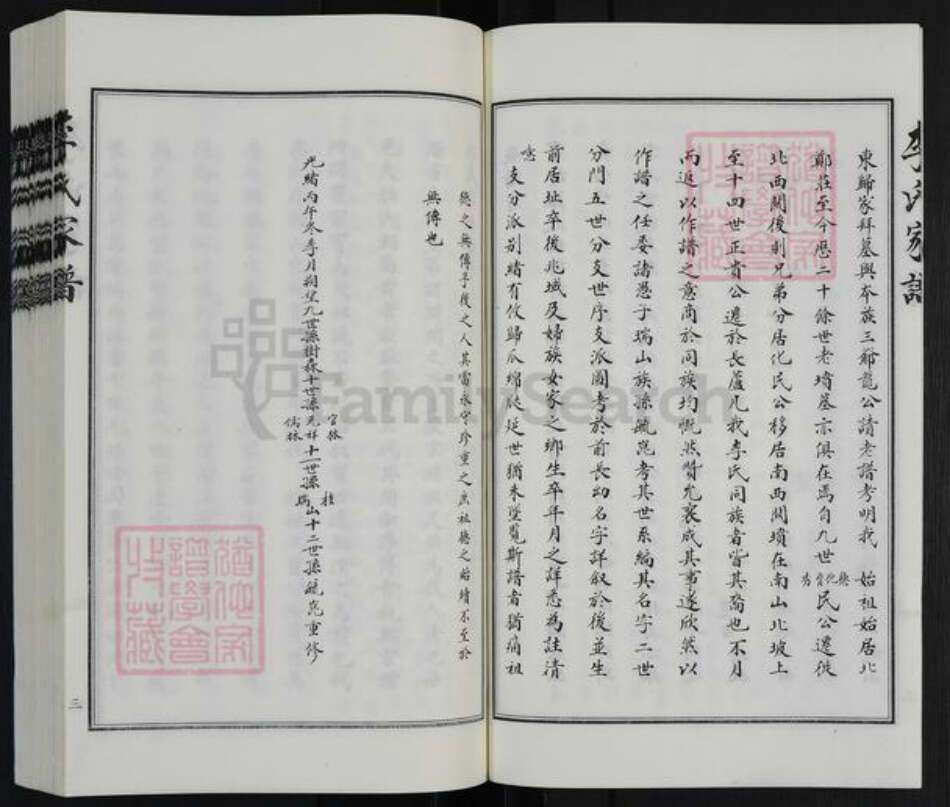 李氏家譜
東歸家拜墓與本族三爺龍公請老譜考明我　始祖始居北
鄭莊至今歷二十餘世老墳墓亦俱在焉自九世　民公遷徙
北西関後則兄弟分居化民公移居南西関墳在南山北坡上
至十四世正肯公遷於長蘆凡我李氏同族者皆其裔也不月
而返以作譜之意商於同族均慨然贊允裏成其事遂欣然以
作譜之任委諸愚于瑞山族孫毓崑考其世系編其名字二世
分門五世分支世序支派圖考於前長幼名字詳叙於後並生
前居址卒後兆域及婦族女家之鄉生卒年月之詳悉為註清
支分派别緒有攸歸瓜綿瓞延世猶未墜覽斯譜者猶痛祖
德之無傳乎後之人其當永守珍重之庶祖德之始績不至於
無傳也
光緒丙午冬季月朔望九世孫樹森十世孫官林
元祥
儒林
十一世孫桂
瑞山十二世孫毓崑重修
李氏家譜
三
FamilySearch
譜學會
收藏
譜學會
收藏